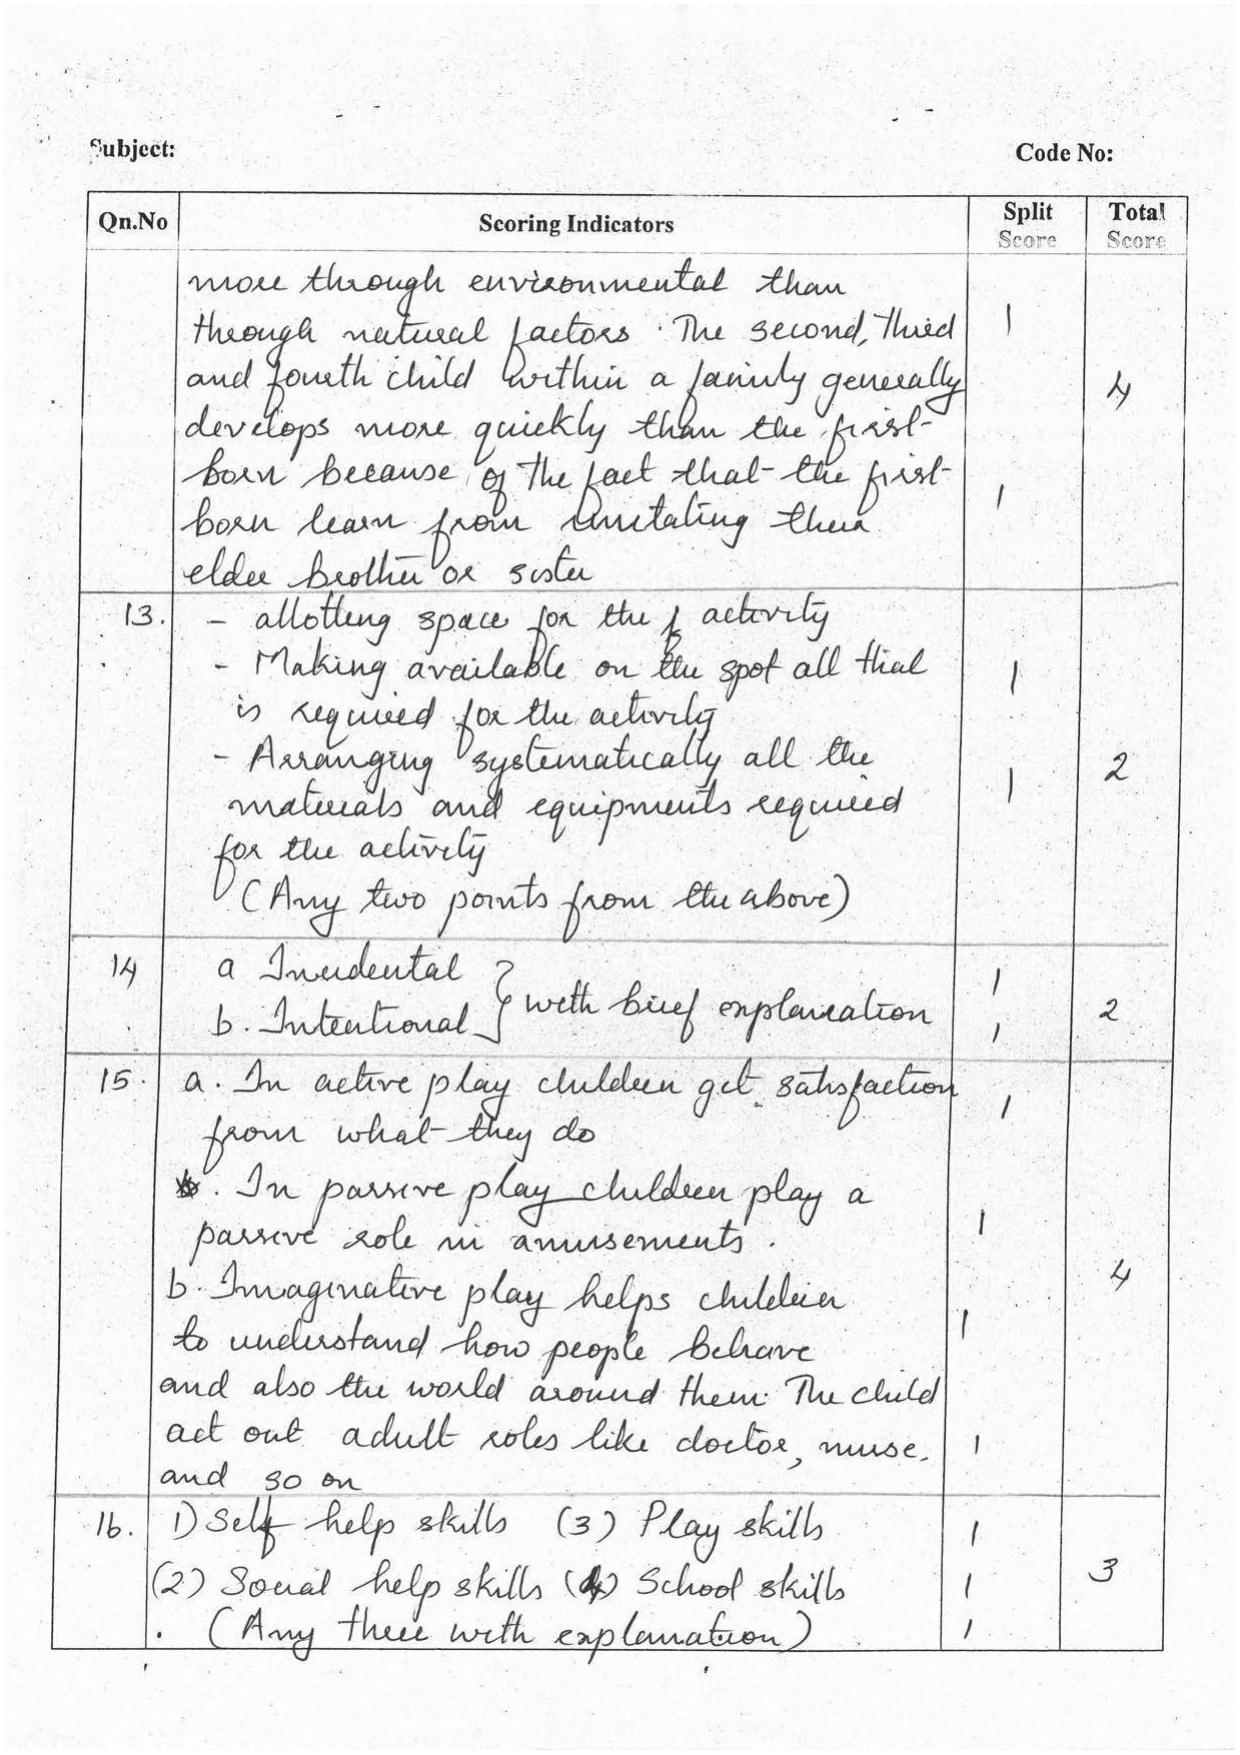 Subject:
Code No:
Qn.No
Scoring Indicators
Split Score
Total Score
more through environmental than
through natural factors. The second, third
1
and fourth child within a family generally
4
develops more quickly than the first-
born because of the fact that the first-
1
born learn from imitating their
elder brother or sister
13. - allotting space for the activity
- Making available on the spot all that
1
is required for the activity
- Arranging systematically all the
2
materials and equipments required
1
for the activity
(Any two points from the above)
14 a Incidental
1
b. Intentional } with brief explanation
1
2
15. a. In active play children get satisfaction
1
from what they do
. In passive play children play a
passive role in amusements.
1
b. Imaginative play helps children
4
to understand how people behave
1
and also the world around them. The child
act out adult roles like doctor, nurse,
1
and so on
16. 1) Self help skills (3) Play skills
1
(2) Social help skills (4) School skills
1
3
. (Any three with explanation)
1